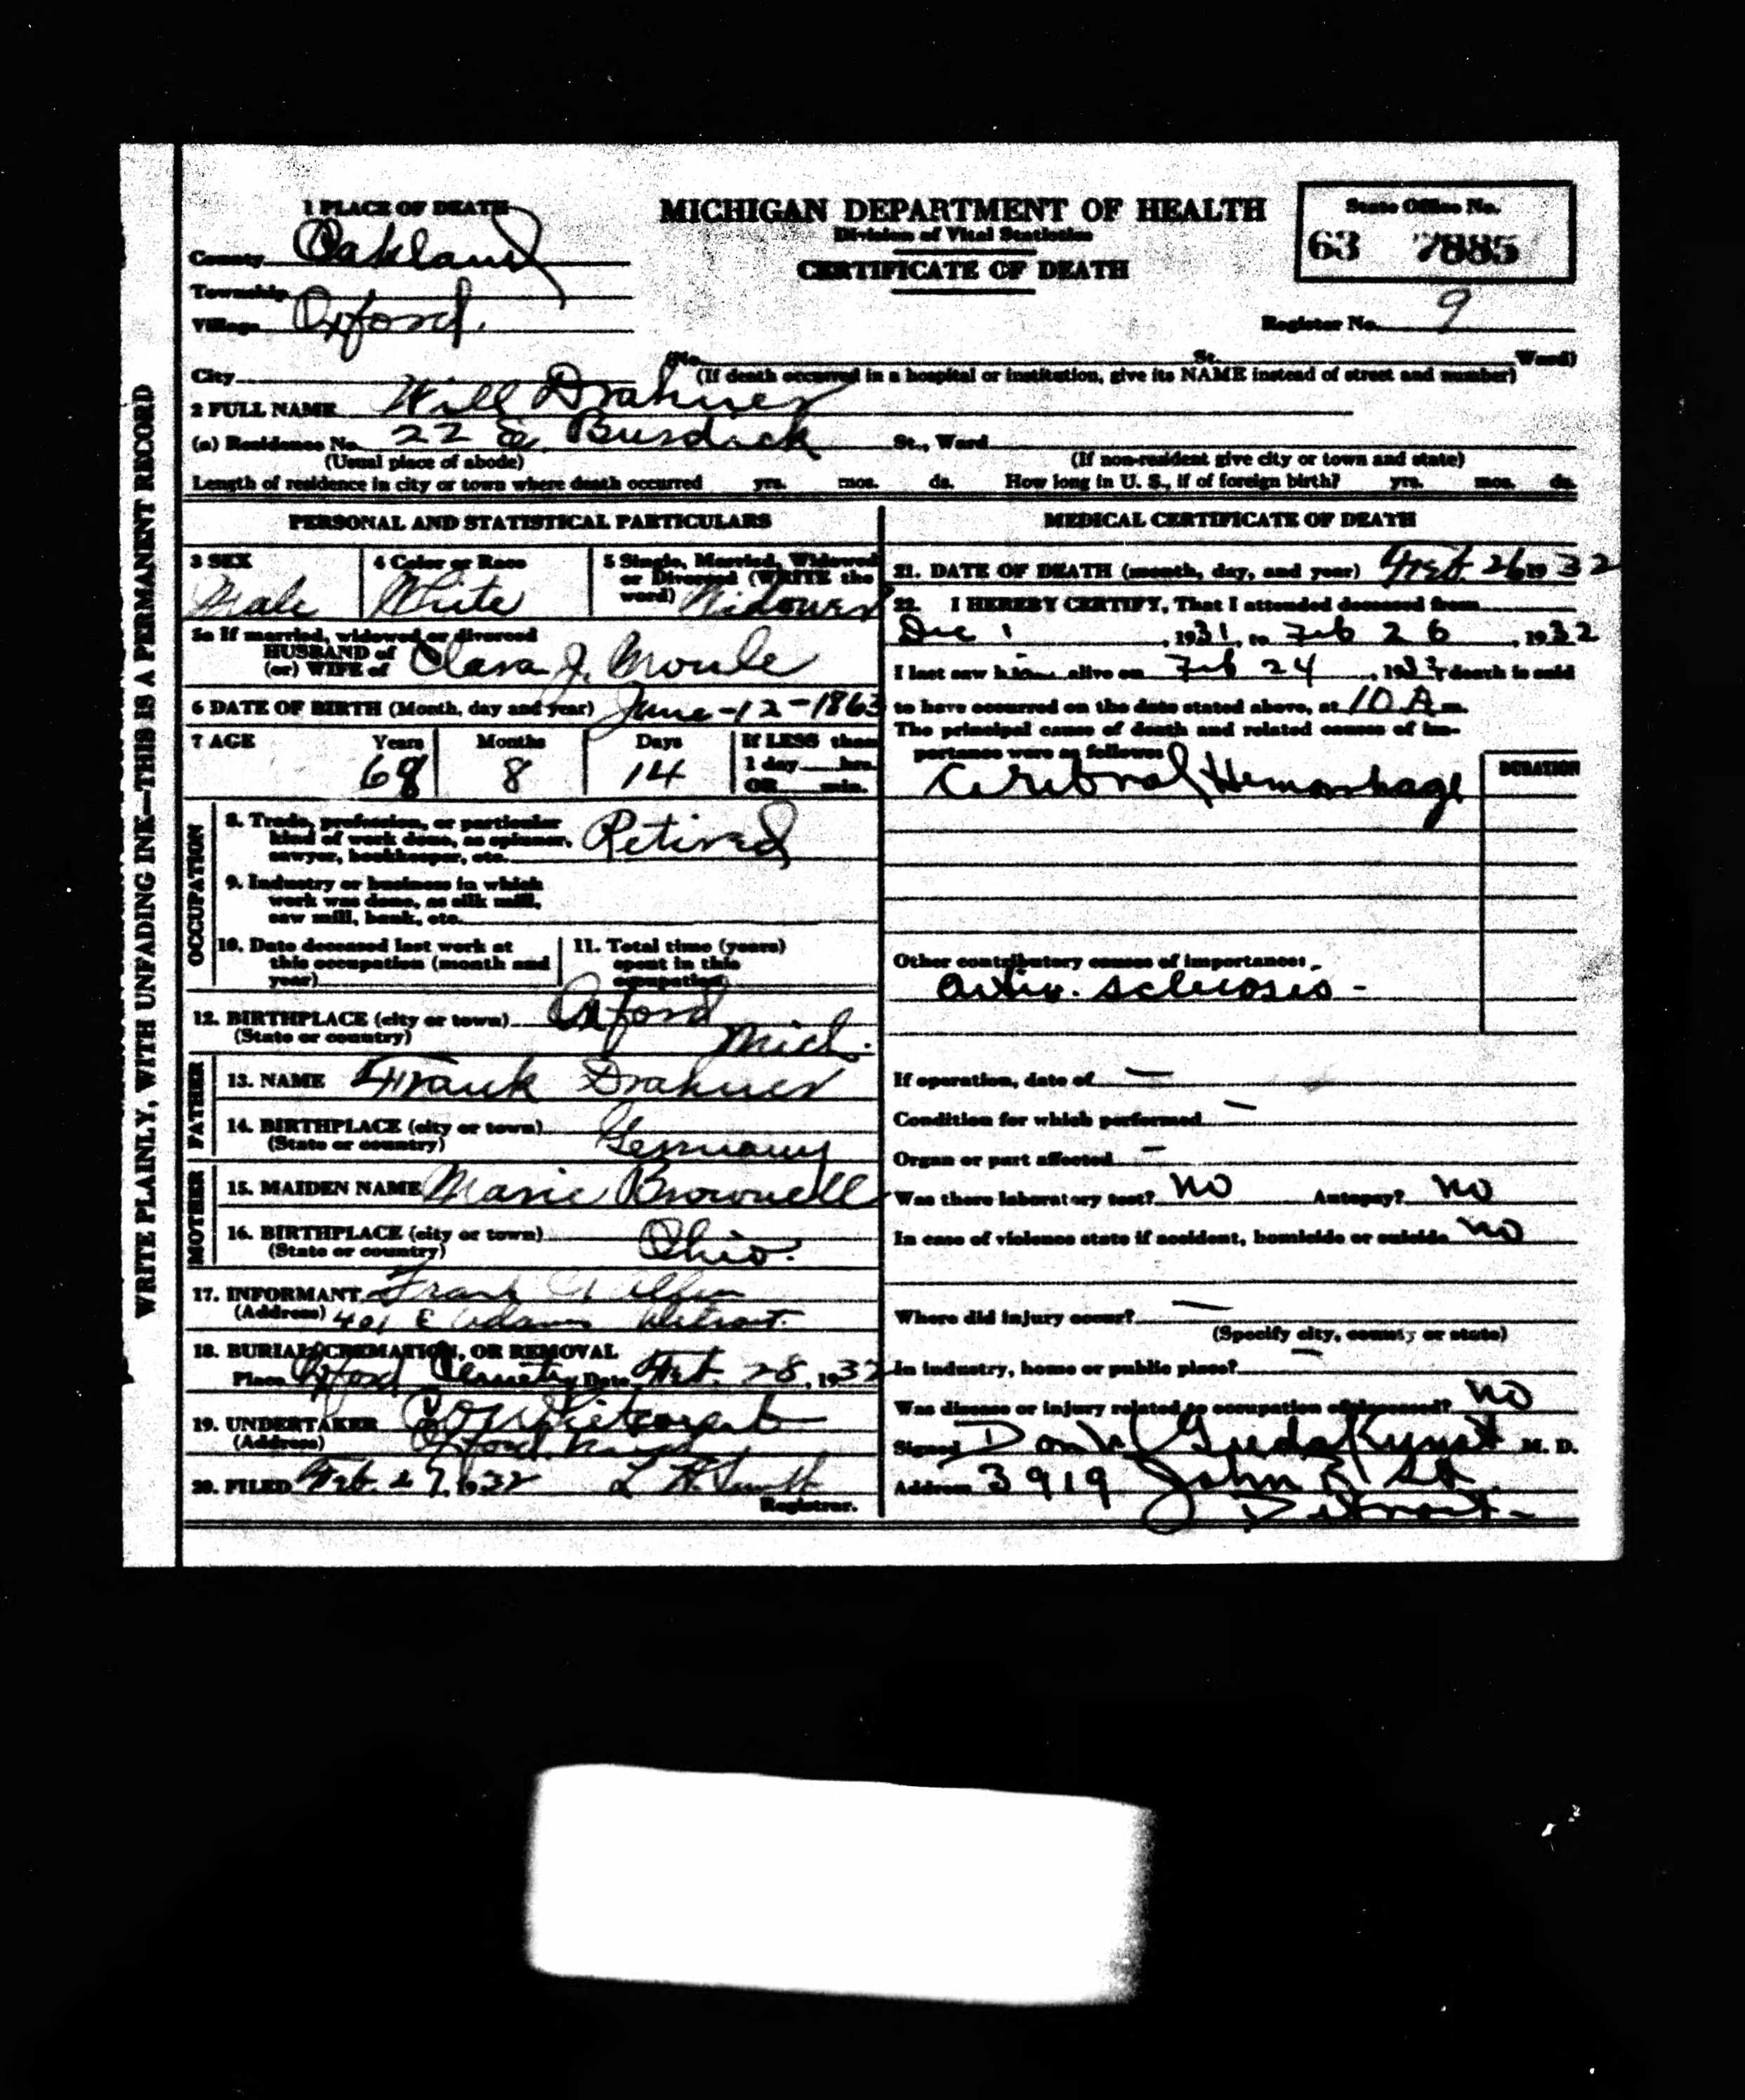 WRITE PLAINLY, WITH UNFADING INK—THIS IS A PERMANENT RECORD
1 PLACE OF DEATH
County Oakland
Township
Village Oxford.
City
MICHIGAN DEPARTMENT OF HEALTH
Division of Vital Statistics
CERTIFICATE OF DEATH
State Office No.
63 7885
Register No. 9
(No. St. Ward)
(If death occurred in a hospital or institution, give its NAME instead of street and number)
2 FULL NAME Will Drahner
(a) Residence No. 22 E. Burdick St., Ward
(Usual place of abode) (If non-resident give city or town and state)
Length of residence in city or town where death occurred yrs. mos. ds. How long in U. S., if of foreign birth? yrs. mos. ds.
PERSONAL AND STATISTICAL PARTICULARS
3 SEX
Male
4 Color or Race
White
5 Single, Married, Widowed
or Divorced (WRITE the
word) Widower
5a If married, widowed or divorced
HUSBAND of
(or) WIFE of Clara J.
6 DATE OF BIRTH (Month, day and year) June-12-1863
7 AGE Years Months Days If LESS than
1 day hrs.
OR min.
68 8 14
OCCUPATION
8. Trade, profession, or particular
kind of work done, as spinner,
sawyer, bookkeeper, etc. Retired
9. Industry or business in which
work was done, as silk mill,
saw mill, bank, etc.
10. Date deceased last work at
this occupation (month and
year)
11. Total time (years)
spent in this
occupation
12. BIRTHPLACE (city or town) Oxford
(State or country) Mich.
FATHER
13. NAME Frank Drahner
14. BIRTHPLACE (city or town)
(State or country) Germany
MOTHER
15. MAIDEN NAME Marie Brownell
16. BIRTHPLACE (city or town)
(State or country) Ohio.
17. INFORMANT Frank
(Address) 401 E Adams Detroit.
18. BURIAL, CREMATION, OR REMOVAL
Place Oxford Cemetery Date Feb. 28, 1932
19. UNDERTAKER
(Address) Oxford Mich
20. FILED Feb. 27, 1932 L H Smith
Registrar.
MEDICAL CERTIFICATE OF DEATH
21. DATE OF DEATH (month, day, and year) Feb. 26, 1932
22. I HEREBY CERTIFY, That I attended deceased from
Dec 1, 1931, to Feb 26, 1932
I last saw him alive on Feb 24, 1932, death is said
to have occurred on the date stated above, at 10 A m.
The principal cause of death and related causes of im-
portance were as follows:
DURATION
Cerebral Hemorrhage
Other contributory causes of importance:
Arterio. sclerosis -
If operation, date of —
Condition for which performed —
Organ or part affected —
Was there laboratory test? No Autopsy? No
In case of violence state if accident, homicide or suicide No
Where did injury occur? —
(Specify city, county or state)
In industry, home or public place? —
Was disease or injury related to occupation of deceased? No
Signed Don W Gudakunst M. D.
Address 3919 John R St
Detroit-